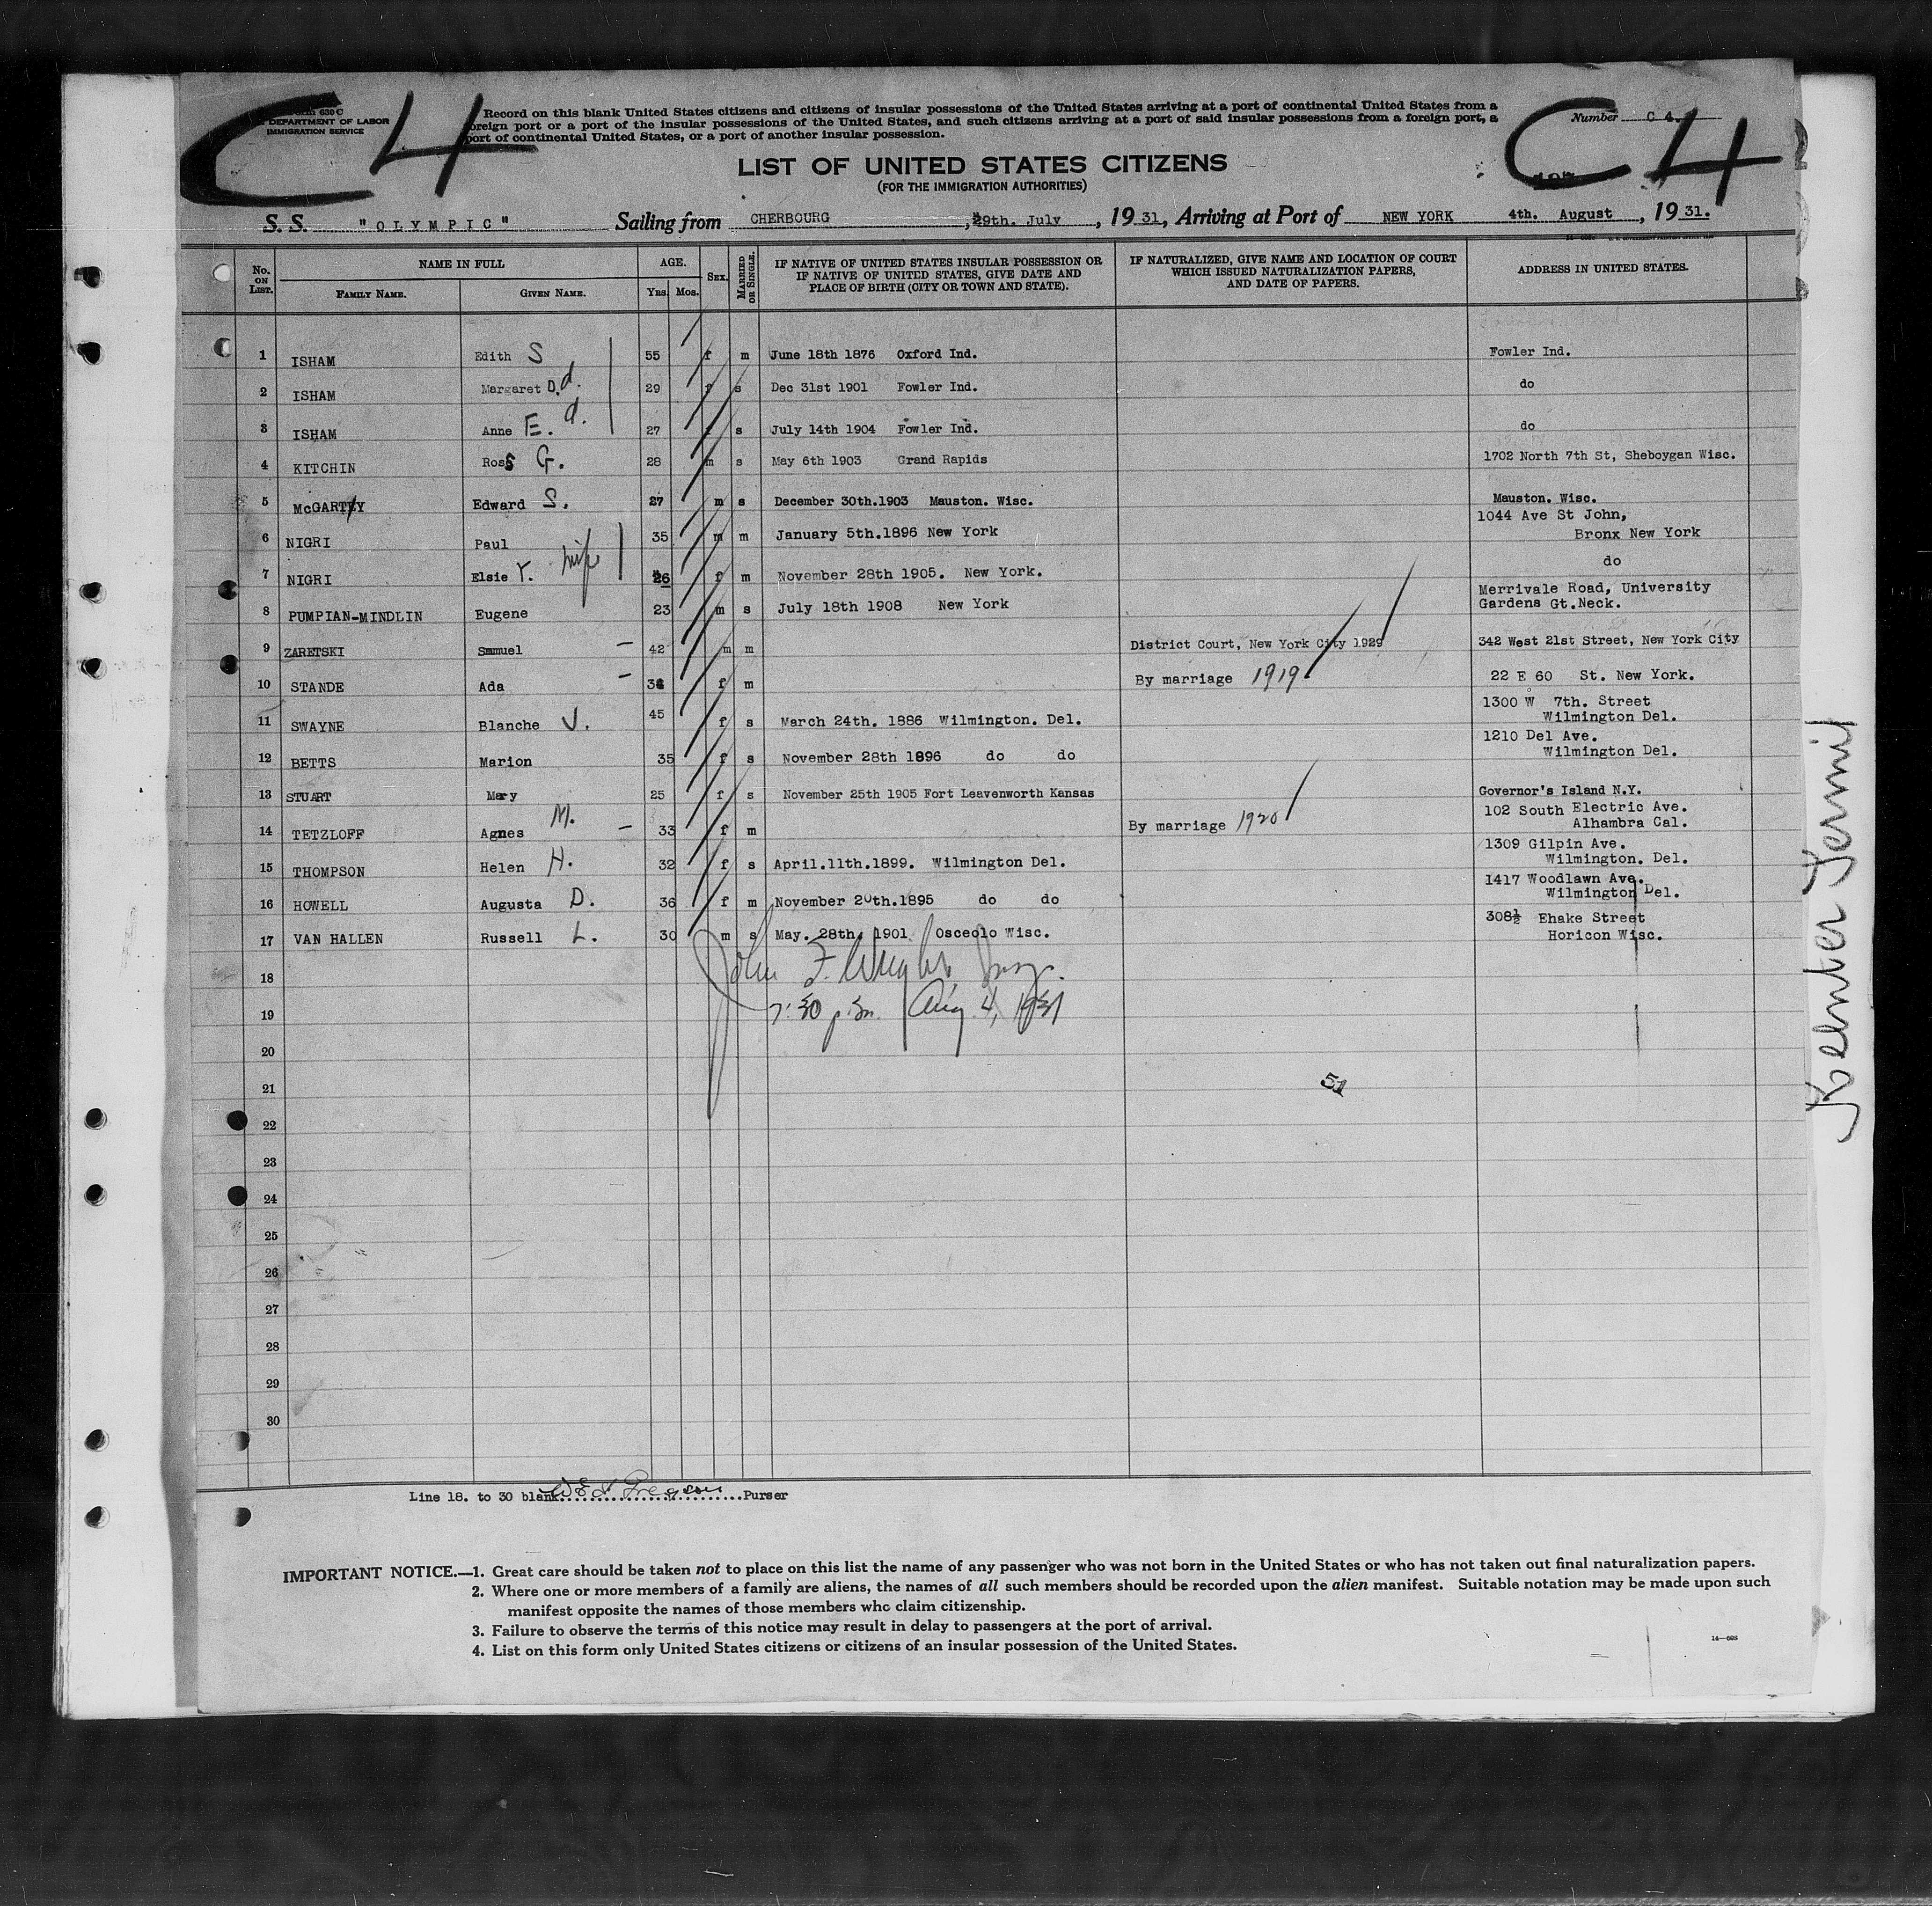 C4
Form 630 C
DEPARTMENT OF LABOR
IMMIGRATION SERVICE
Record on this blank United States citizens and citizens of insular possessions of the United States arriving at a port of continental United States from a
foreign port or a port of the insular possessions of the United States, and such citizens arriving at a port of said insular possessions from a foreign port, a
port of continental United States, or a port of another insular possession.
Number C 4.
C4
LIST OF UNITED STATES CITIZENS
(FOR THE IMMIGRATION AUTHORITIES)
S. S. "OLYMPIC" Sailing from CHERBOURG, 29th. July, 1931, Arriving at Port of NEW YORK 4th. August, 1931.
No. ON LIST. NAME IN FULL FAMILY NAME. GIVEN NAME. AGE. Yrs. Mos. SEX. MARRIED OR SINGLE. IF NATIVE OF UNITED STATES INSULAR POSSESSION OR IF NATIVE OF UNITED STATES, GIVE DATE AND PLACE OF BIRTH (CITY OR TOWN AND STATE). IF NATURALIZED, GIVE NAME AND LOCATION OF COURT WHICH ISSUED NATURALIZATION PAPERS, AND DATE OF PAPERS. ADDRESS IN UNITED STATES.
1 ISHAM Edith S 55 f m June 18th 1876 Oxford Ind. Fowler Ind.
2 ISHAM Margaret D. d. 29 f s Dec 31st 1901 Fowler Ind. do
3 ISHAM Anne E. d. 27 f s July 14th 1904 Fowler Ind. do
4 KITCHIN Ross G. 28 m s May 6th 1903 Grand Rapids 1702 North 7th St, Sheboygan Wisc.
5 McGARTY Edward S. 27 m s December 30th.1903 Mauston. Wisc. Mauston. Wisc.
6 NIGRI Paul 35 m m January 5th.1896 New York 1044 Ave St John,
Bronx New York
7 NIGRI Elsie Y. wife 26 f m November 28th 1905. New York. do
8 PUMPIAN-MINDLIN Eugene 23 m s July 18th 1908 New York Merrivale Road, University
Gardens Gt.Neck.
9 ZARETSKI Samuel — 42 m m District Court, New York City 1929 342 West 21st Street, New York City
10 STANDE Ada — f m By marriage 1919 22 E 60 St. New York.
11 SWAYNE Blanche J. 45 f s March 24th. 1886 Wilmington. Del. 1300 W 7th. Street
Wilmington Del.
12 BETTS Marion 35 f s November 28th 1896 do do 1210 Del Ave.
Wilmington Del.
13 STUART Mary 25 f s November 25th 1905 Fort Leavenworth Kansas Governor's Island N.Y.
14 TETZLOFF Agnes M. — 33 f m By marriage 1920 102 South Electric Ave.
Alhambra Cal.
15 THOMPSON Helen H. 32 f s April.11th.1899. Wilmington Del. 1309 Gilpin Ave.
Wilmington. Del.
16 HOWELL Augusta D. 36 f m November 20th.1895 do do 1417 Woodlawn Ave.
Wilmington Del.
17 VAN HALLEN Russell L. 30 m s May. 28th. 1901 Osceolo Wisc. 308½ Ehake Street
Horicon Wisc.
18 John F. Wright Insp.
19 7:30 p.m. Aug 4, 1931
20
21
51
22
23
24
25
26
27
28
29
30
Line 18. to 30 blank Purser
IMPORTANT NOTICE.—1. Great care should be taken not to place on this list the name of any passenger who was not born in the United States or who has not taken out final naturalization papers.
2. Where one or more members of a family are aliens, the names of all such members should be recorded upon the alien manifest. Suitable notation may be made upon such
manifest opposite the names of those members who claim citizenship.
3. Failure to observe the terms of this notice may result in delay to passengers at the port of arrival.
4. List on this form only United States citizens or citizens of an insular possession of the United States.